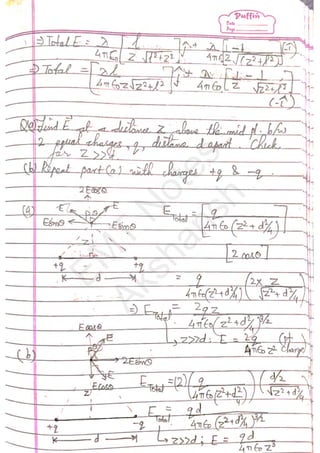 Puffin
Date
Page
⇒ Total E = λ/4πε₀ [l / z√(l²+z²)] ĵ + λ/4πε₀ [1/z − 1/√(z²+l²)] (-î)
⇒ Total = [λl / 4πε₀z√(z²+l²)] ĵ + λ/4πε₀ [1/z − 1/√(z²+l²)]
(-î)
Find E at a distance z above the mid pt. b/w
2 equal charges, q, distance d apart. Check
for z >>d.
(b) Repeat part (a) with charges +q & -q.
2Ecosθ
(a) E E E_Total = [q / 4πε₀(z² + d²/4)]
Esinθ P Esinθ
[2 cosθ]
z
+q d +q
= q / 4πε₀[z²+d²/4] (2 x z / √(z²+d²/4))
⇒ E_Total = 2qz / 4πε₀(z² + d²/4)^3/2
Ecosθ
E , z>>d; E = 2q / 4πε₀z² (pt charge)
(b) P 2Esinθ
Ecosθ E E_Total = (2) (q / 4πε₀(z²+d²/4)) (d/2 / √(z²+d²/4))
z
E_Total = qd / 4πε₀(z²+d²/4)^3/2
+q d -q
↳ z>>d; E = qd / 4πε₀z³
EMT Notes
Akshansh